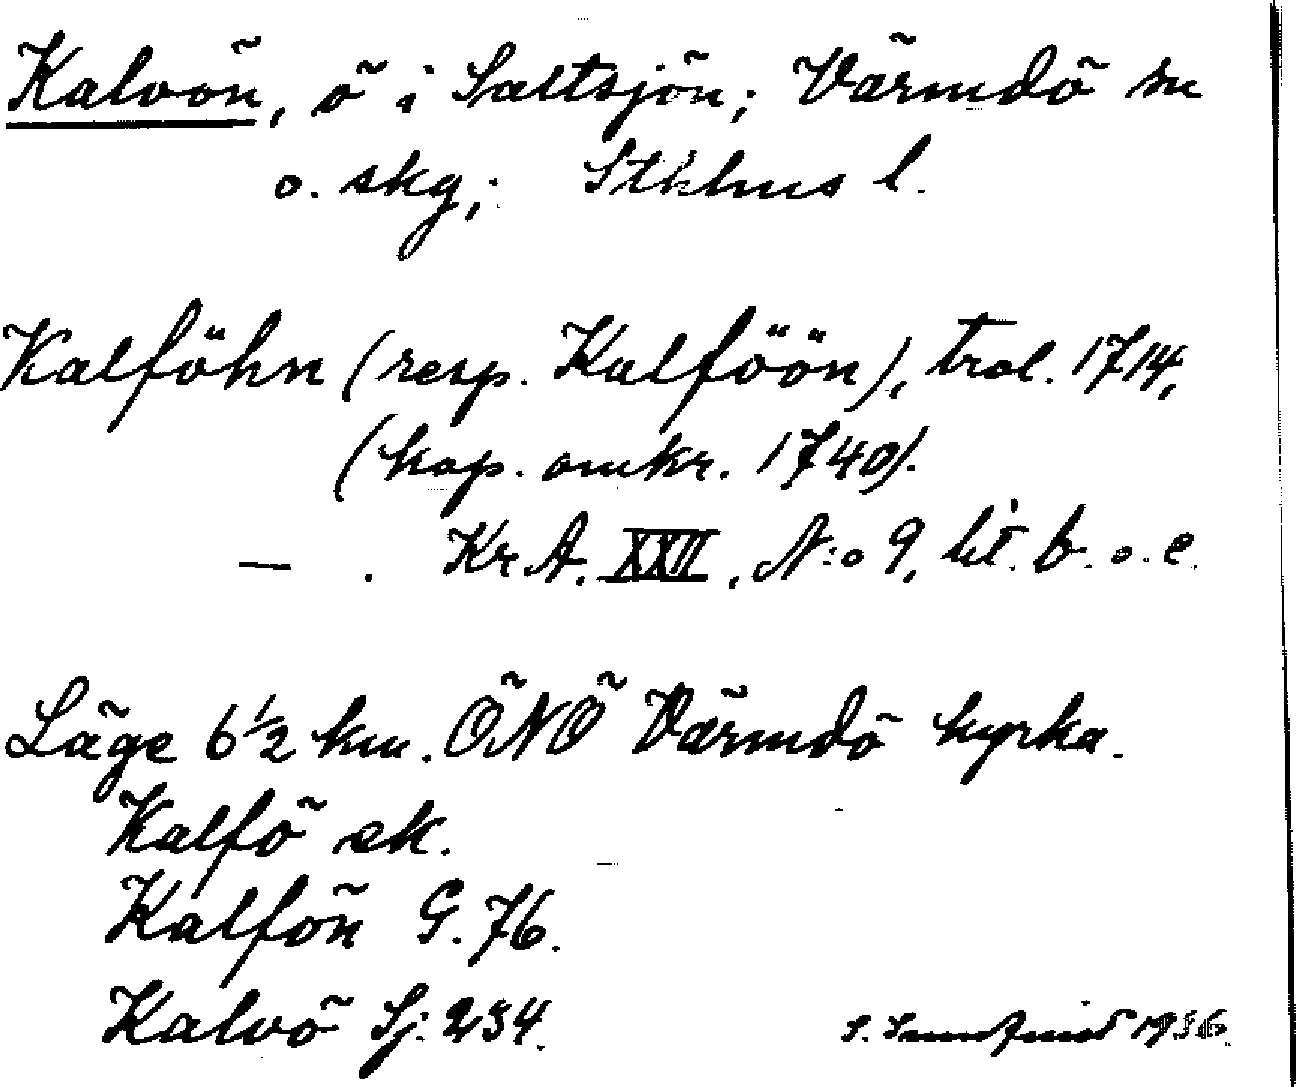 Kalvön, ö i Saltsjön; Värmdö sn
o. skg; Sthlms l.
Kalföhn (resp. Kalföön), trol. 1714,
(kop. omkr. 1740).
— . Kr.A. XXII, N:o 9, lit. b. o. e.
Läge 6½ km. ÖNÖ Värmdö kyrka.
Kalfö ek.
Kalfön G. 76.
Kalvö Sj. 234.
S. 1936.